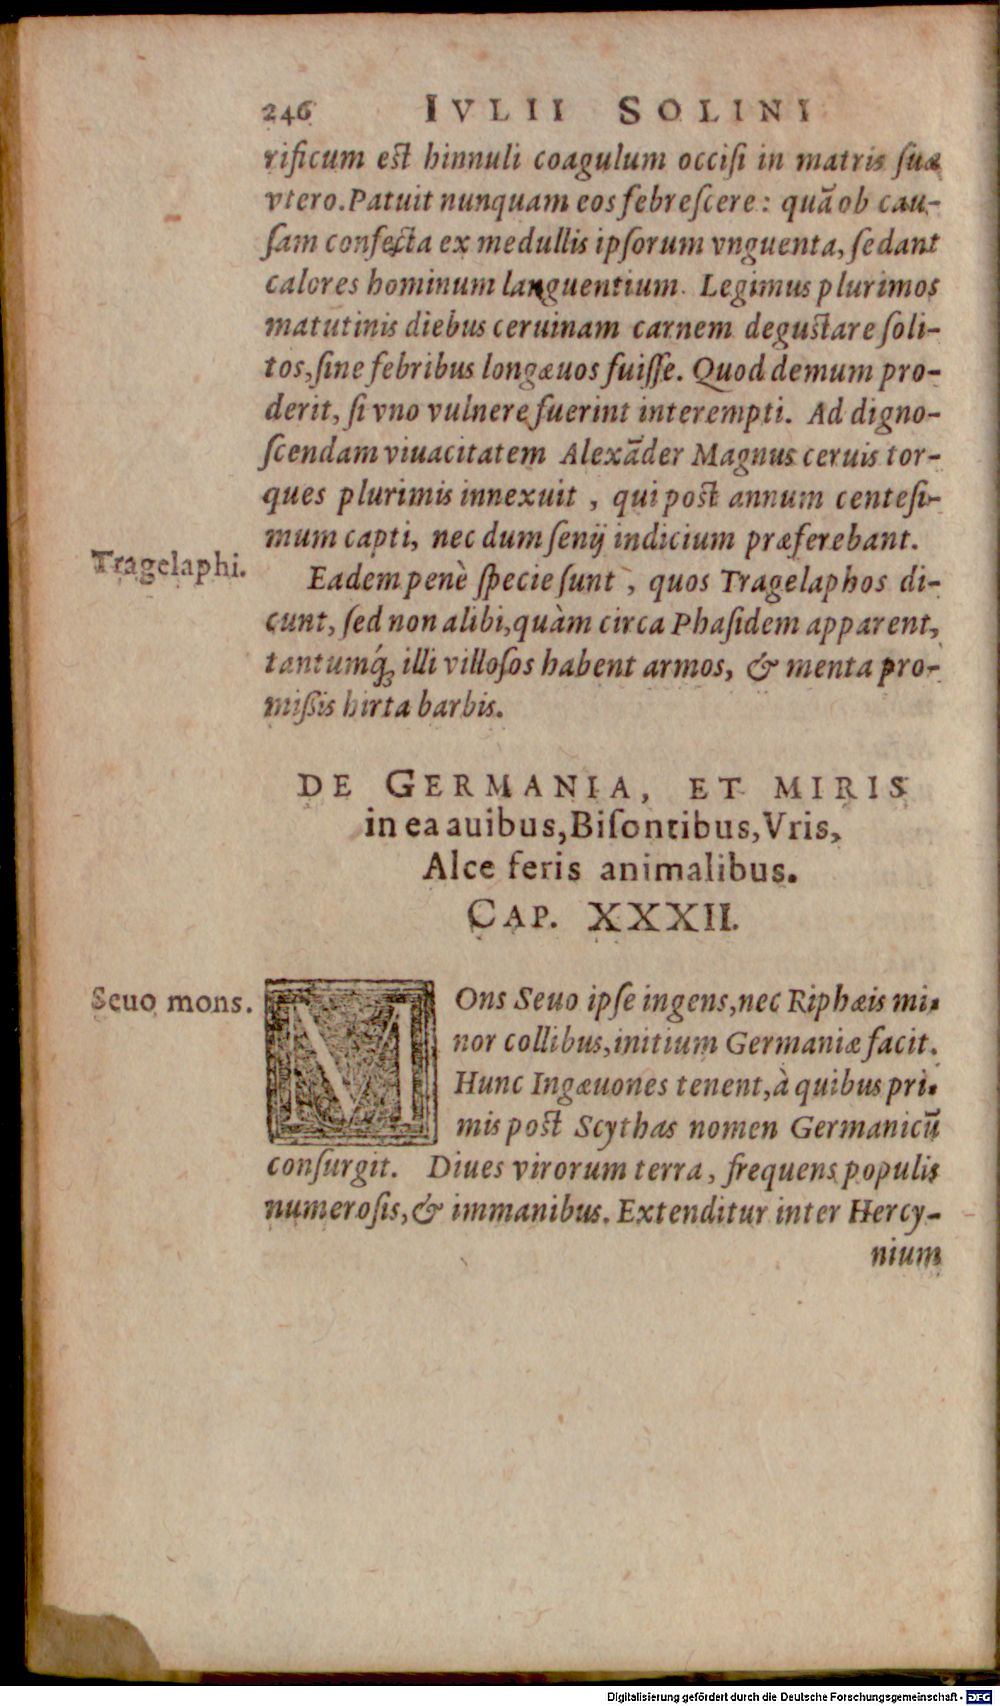 246 IVLII SOLINI
rificum est hinnuli coagulum occiſi in matris ſuæ
vtero. Patuit nunquam eos febreſcere: quã ob cau-
ſam confecta ex medullis ipſorum vnguenta, ſedant
calores hominum languentium. Legimus plurimos
matutinis diebus ceruinam carnem deguſtare ſoli-
tos, ſine febribus longæuos fuiſſe. Quod demum pro-
derit, ſi vno vulnere fuerint interempti. Ad digno-
ſcendam viuacitatem Alexãder Magnus ceruis tor-
ques plurimis innexuit, qui poſt annum centeſi-
mum capti, nec dum ſenij indicium præferebant.
Tragelaphi.
Eadem penè ſpecie ſunt, quos Tragelaphos di-
cunt, ſed non alibi, quàm circa Phaſidem apparent,
tantumq́; illi villoſos habent armos, & menta pro-
miſsis hirta barbis.
DE GERMANIA, ET MIRIS
in ea auibus, Biſontibus, Vris,
Alce feris animalibus.
CAP. XXXII.
Seuo mons.
MOns Seuo ipſe ingens, nec Riphæis mi-
nor collibus, initium Germaniæ facit.
Hunc Ingæuones tenent, à quibus pri-
mis poſt Scythas nomen Germanicũ
conſurgit. Diues virorum terra, frequens populis
numeroſis, & immanibus. Extenditur inter Hercy-
nium
Digitalisierung gefördert durch die Deutsche Forschungsgemeinschaft - DFG